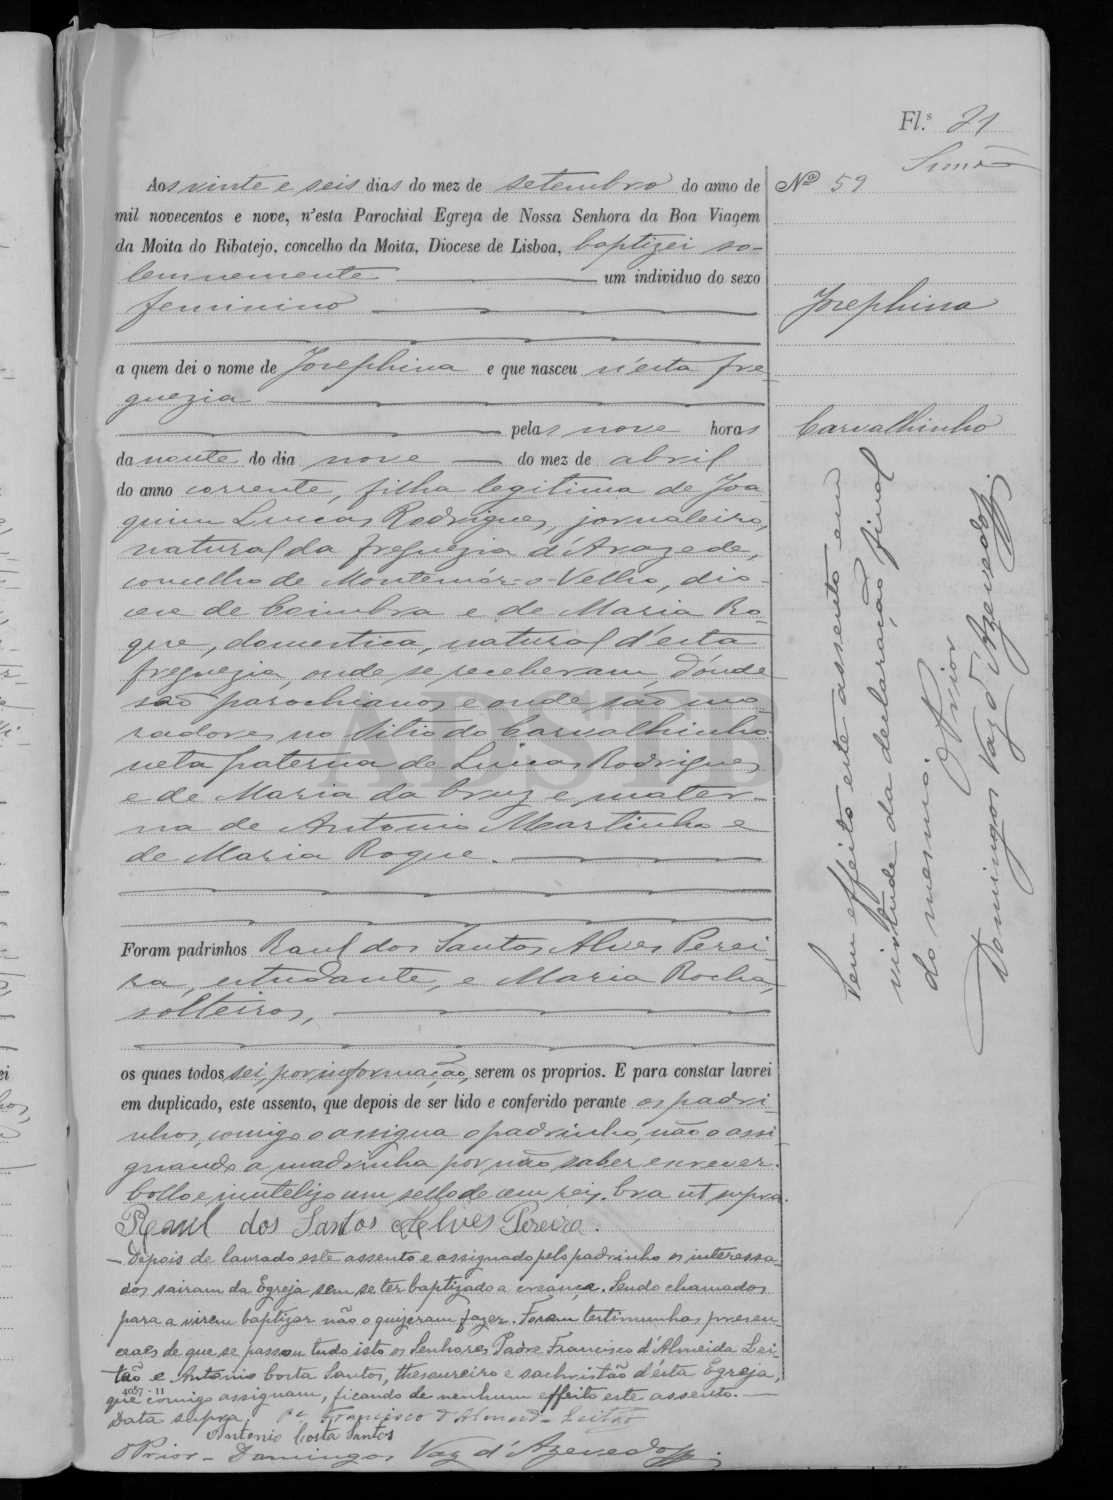 Fl.s 21
Simão
Aos vinte e seis dias do mez de setembro do anno de
mil novecentos e nove, n'esta Parochial Egreja de Nossa Senhora da Boa Viagem
da Moita do Ribatejo, concelho da Moita, Diocese de Lisboa, baptizei so-
lemnemente um individuo do sexo
feminino
a quem dei o nome de Josephina e que nasceu n'esta fre-
guezia
pelas nove horas
da noute do dia nove do mez de abril
do anno corrente, filha legitima de Joa-
quim Lucas Rodrigues, jornaleiro,
natural da freguezia d'Arazede,
concelho de Montemór-o-Velho, dio-
cese de Coimbra e de Maria Ro-
que, domestica, natural d'esta
freguezia, onde se receberam, d'onde
são parochianos e onde são mo-
radores no Sitio do Carvalhinho
neta paterna de Lucas Rodrigues
e de Maria da Cruz e mater-
na de Antonio Martinho e
de Maria Roque.
Foram padrinhos Raul dos Santos Alves Perei-
ra, estudante, e Maria Rocha,
solteiros,
os quaes todos sei, por informação, serem os proprios. E para constar lavrei
em duplicado, este assento, que depois de ser lido e conferido perante os padri-
nhos, comigo o assigna o padrinho, não o assi-
gnando a madrinha por não saber escrever.
Collo e inutelizo um sello de cem reis. Era ut supra.
Raul dos Santos Alves Pereira.
— Depois de lavrado este assento e assignado pelo padrinho os interessa-
dos sairam da Egreja sem se ter baptizado a creança. Sendo chamados
para a virem baptizar não o quizeram fazer. Foram testimunhas presen-
ciaes de que se passou tudo isto os Senhores Padre Francisco d'Almeida Lei-
tão e Antonio Costa Santos, thesoureiro e sachristão d'esta Egreja,
4087 - 11
que comigo assignam, ficando de nenhum effeito este assento. —
Data supra. Pe Francisco d'Almeida Leitão
Antonio Costa Santos
O Prior - Domingos Vaz d'Azevedo
Nº 59
Josephina
Carvalhinho
Sem effeito este assento em
virtude da declaração final
do mesmo.
O Prior
Domingos Vaz d'Azevedo
ADSTB